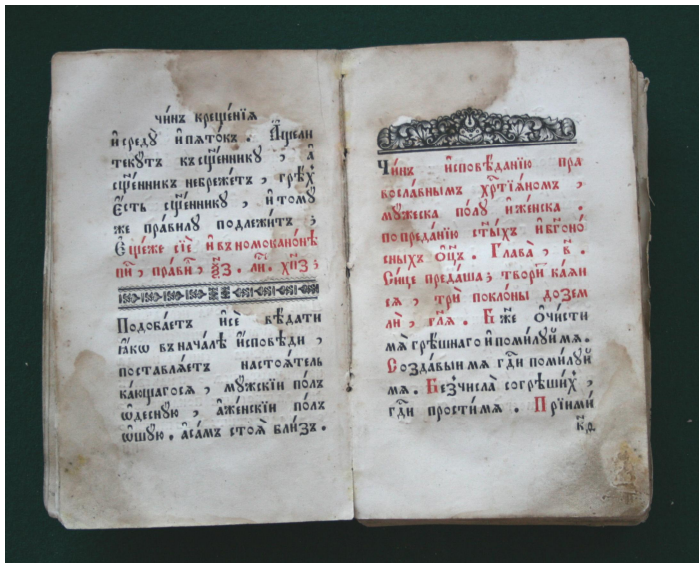 чи́нъ креще́нїѧ
и҆ среду и҆ пѧто́къ . А҆ще ли
текутъ къ сщ҃е́ннику , а҆
сщ҃е́нникъ небреже́тъ , грѣ́хъ
є҆́сть сщ҃е́ннику , и҆ тому
же пра́вилу подлежи́тъ ;
Є҆ще́же сїѐ и҆ въ номокано́нѣ
Подоба́етъ и҆ сѐ вѣ́дати
ꙗ҆́кѡ въ нача́лѣ и҆сповѣ́ди ,
поставлѧ́етъ настоѧ́тель
ка́ющагосѧ , му́жскїи по́лъ
ѡ҆десну́ю , а҆ же́нскїи по́лъ
ѡ҆шу́ю . а҆ са́мъ стоѧ̀ бли́зъ .
Чи́нъ и҆сповѣ́данїю пра
восла́внымъ хрⷭ҇тїѧ́номъ ,
му́жеска по́лу и҆ же́нска .
по преда́нїю ст҃ы́хъ и҆ бг҃оно́
сныхъ ѻ҆ц҃ъ . Глава̀ , в҃ .
Си́це преда́ша ; твори́ ка́ѧи
сѧ , трѝ покло́ны до зем
лѝ , гл҃ѧ . Бж҃е ѡ҆чи́сти
мѧ̀ грѣ́шнаго и҆ поми́луй мѧ .
Созда́выи мѧ гдⷭ҇и поми́луй
мѧ . Без̾числа̀ согрѣши́хъ ,
гдⷭ҇и прости́ мѧ . Прїимѝ
к҃д